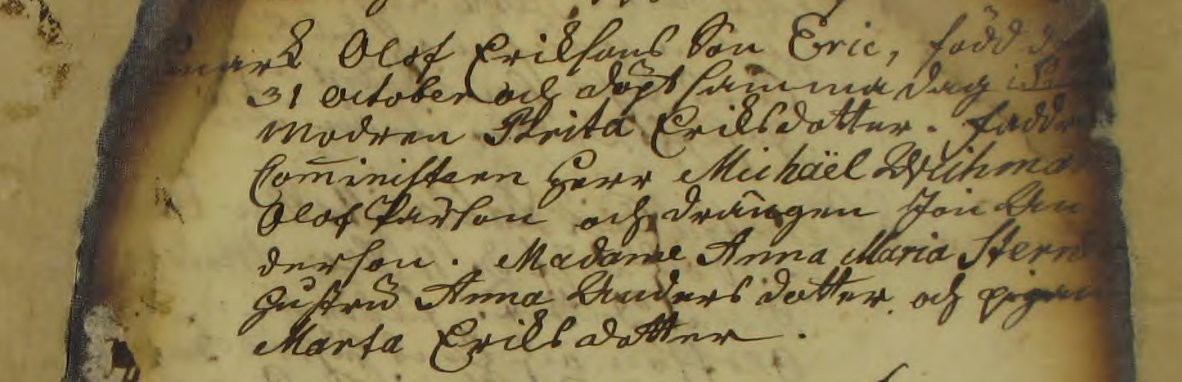 mark Olof Eriksons Son Eric, född
31 October och döpt samma dag
Modren Brita Eriksdotter. Faddr
Comministern Herr Michaël
Olof Pärson och drängen Jon An
derson. Madame Anna Maria Stern
Hustru Anna Andersdotter och pigan
Marta Eriksdotter.